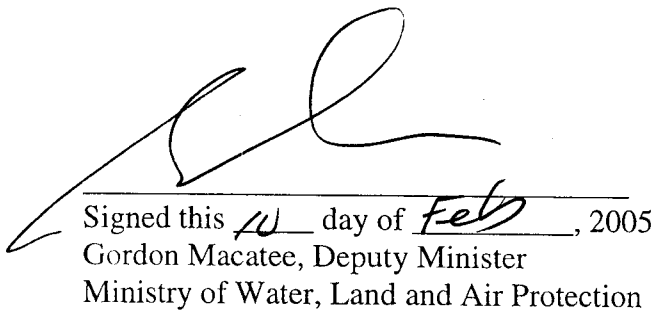 Signed this 10 day of Feb, 2005
Gordon Macatee, Deputy Minister
Ministry of Water, Land and Air Protection